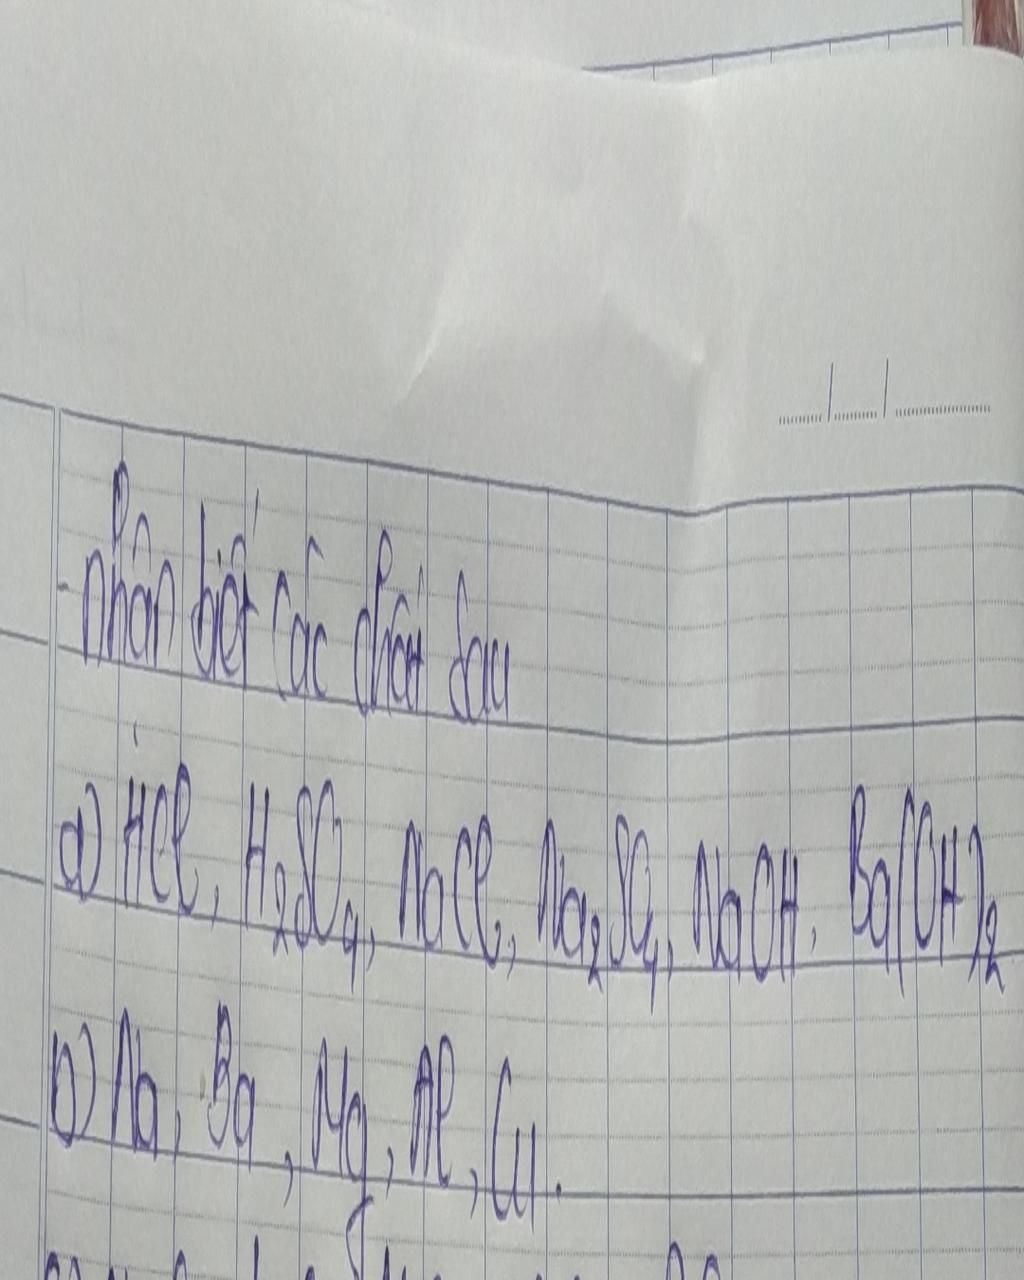 - Nhận biết các chất sau
a) HCl, H₂SO₄, NaCl, Na₂SO₄, NaOH, Ba(OH)₂
b) Na, Ba, Mg, Al, Cu.